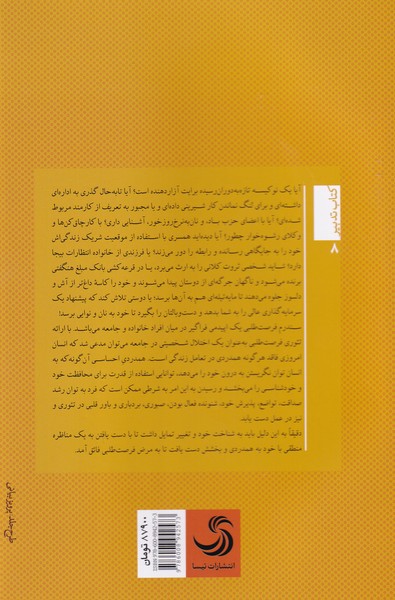 کتاب تدبیر
۸
آیا یک نوکیسه تازه‌به‌دوران‌رسیده برایت آزاردهنده است؟ آیا تابه‌حال گذری به اداره‌ای
داشته‌ای و برای لنگ نماندن کار شیرینی داده‌ای و یا مجبور به تعریف از کارمند مربوط
شده‌ای؟ آیا با اعضای حزب باد، و نان‌به‌نرخ‌روزخور، آشنایی داری؟ با کارچاق‌کن‌ها و
وکلای رشوه‌خوار چطور؟ آیا دیده‌اید همسری با استفاده از موقعیت شریک زندگی‌اش
خود را به جایگاهی رسانده و رابطه را دور می‌زند؟ یا فرزندی از خانواده انتظارات بیجا
دارد؟ شاید شخصی ثروت کلانی را به ارث می‌برد، یا در قرعه‌کشی بانک مبلغ هنگفتی
برنده می‌شود و ناگهان جرگه‌ای از دوستان پیدا می‌شوند و خود را کاسهٔ داغ‌تر از آش و
دلسوز جلوه می‌دهند تا مابه‌التیله‌ای هم به آن‌ها برسد؛ یا دوستی تلاش کند که پیشنهاد یک
سرمایه‌گذاری عالی را به شما بدهد و دست‌وبالتان را بگیرد تا خود به نان و نوایی برسد؛
سندرم فرصت‌طلبی یک اپیدمی فراگیر در میان افراد خانواده و جامعه می‌باشد. با ارائه
تئوری فرصت‌طلبی به‌عنوان یک اختلال شخصیتی در جامعه می‌توان مدعی شد که انسان
امروزی فاقد هرگونه همدردی در تعامل زندگی است. همدردی احساسی آن‌گونه‌که به
انسان توان نگریستن به درون خود را می‌دهند، توانایی استفاده از قدرت برای محافظت خود
و خودشناسی را می‌بخشند و رسیدن به این امر به شرطی ممکن است که فرد به توان رشد
صداقت، تواضع، پذیرش خود، شنونده فعال بودن، صبوری، بردباری و باور قلبی در تئوری و
نیز در عمل دست یابد.
دقیقاً به این دلیل باید به شناخت خود و تغییر تمایل داشت تا با دست یافتن به یک مناظره
منطقی با خود به همدردی و بخشش دست یافت تا به مرض فرصت‌طلبی فائق آمد.
طرح جلد: پرویز بیانی
۸۷۹۰۰ تومان
انتشارات تیسا